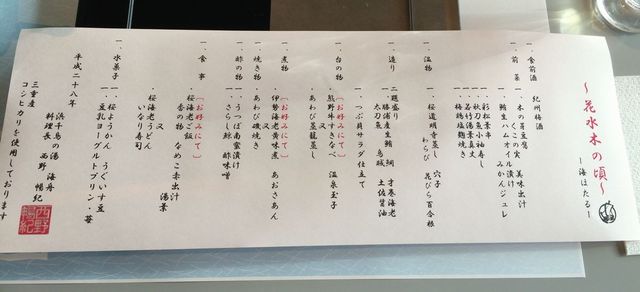 ～花水木の頃～
―海ほたる―
一、食前酒
紀州梅酒
一、前菜
一、木の芽豆腐 美味出汁
一、くこの実
一、鮪生ハムオイル漬け
みかんジュレ
一、彩松葉串
一、秋刀魚小袖寿し
一、若竹湯葉真丈
一、梅鶏塩麹焼き
一、温物
一、桜道明寺蒸し 穴子
わらび 花びら百合根
一、造り
二題盛り
勝浦産生鮪 鯛 才巻海老
太刀魚 烏賊 土佐醤油
一、つぶ貝サラダ仕立て
一、台の物
〔お好みにて〕
熊野牛すきなべ 温泉玉子
又
あわび蒸籠蒸し
一、煮物
〔お好みにて〕
伊勢海老黄味煮 あおさあん
一、焼き物
あわび磯焼き
一、酢の物
一、うつぼ蜜漬け
一、さらし鯨 酢味噌
一、食事
〔お好みにて〕
桜海老ご飯
香の物 なめこ赤出汁
湯葉
又
桜海老うどん
いなり寿司
一、水菓子
一、桜ようかん うぐいす豆
一、豆乳ヨーグルトプリン・苺
平成二十八年
浜千鳥の湯 海舟
料理長 西野 暢紀
三重産
コシヒカリを使用しております
西野暢紀